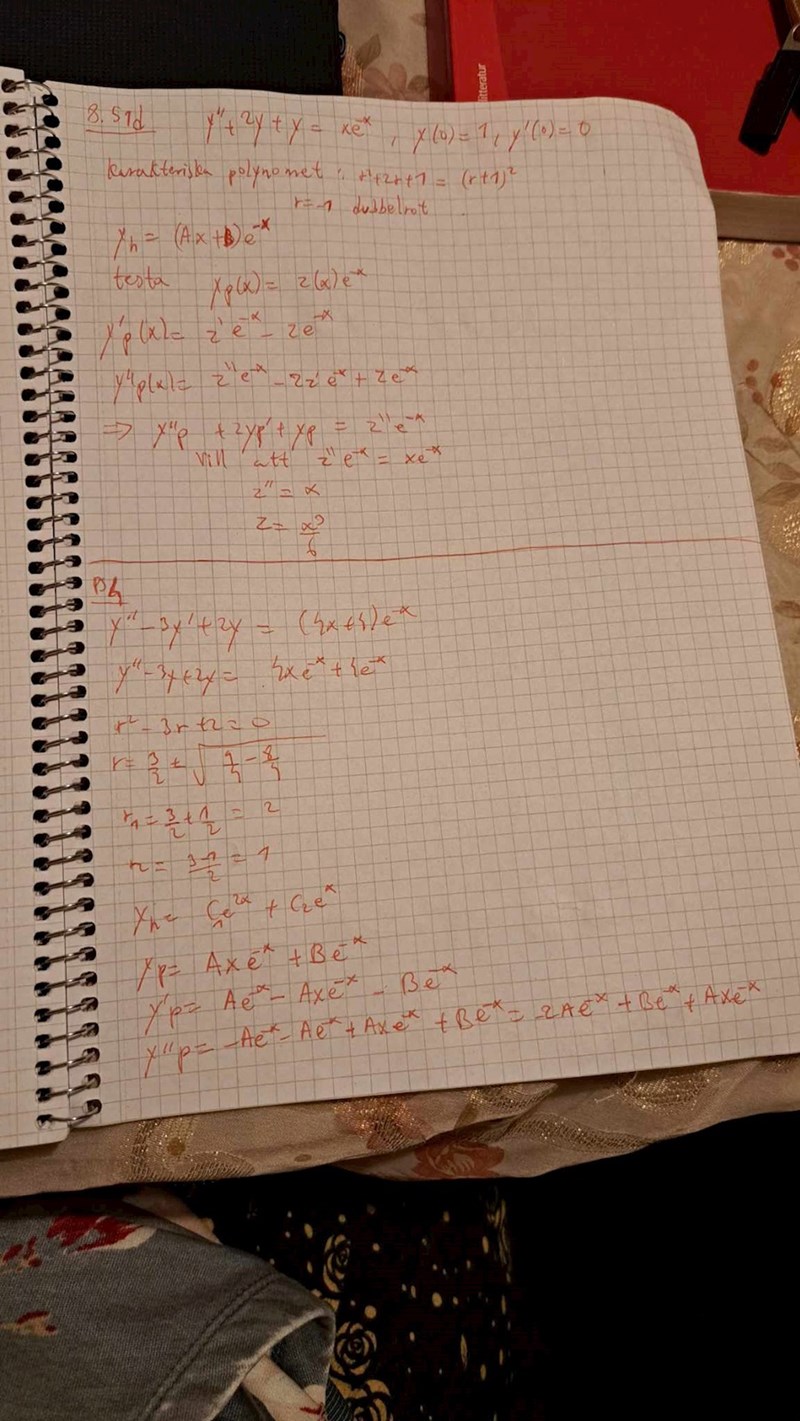 litteratur
8.51d y'' + 2y + y = xe^-x , y(0) = 1, y'(0) = 0
karakteriska polynomet : r²+2r+1 = (r+1)²
r=-1 dubbelrot
yh = (Ax+B)e^-x
testa yp(x) = z(x)e^-x
y'p(x) = z'e^-x - ze^-x
y''p(x) = z''e^-x - 2z'e^-x + ze^-x
⇒ y''p + 2yp' + yp = z''e^-x
vill att z''e^-x = xe^-x
z'' = x
z = x³/6
y'' - 3y' + 2y = (4x+4)e^-x
y'' - 3y + 2y = 4xe^-x + 4e^-x
r² - 3r + 2 = 0
r = 3/2 ± √(9/4 - 8/4)
r1 = 3/2 + 1/2 = 2
r2 = (3-1)/2 = 1
yh = C1e^2x + C2e^x
yp = Axe^-x + Be^-x
y'p = Ae^-x - Axe^-x - Be^-x
y''p = -Ae^-x - Ae^-x + Axe^-x + Be^-x = 2Ae^-x + Be^-x + Axe^-x